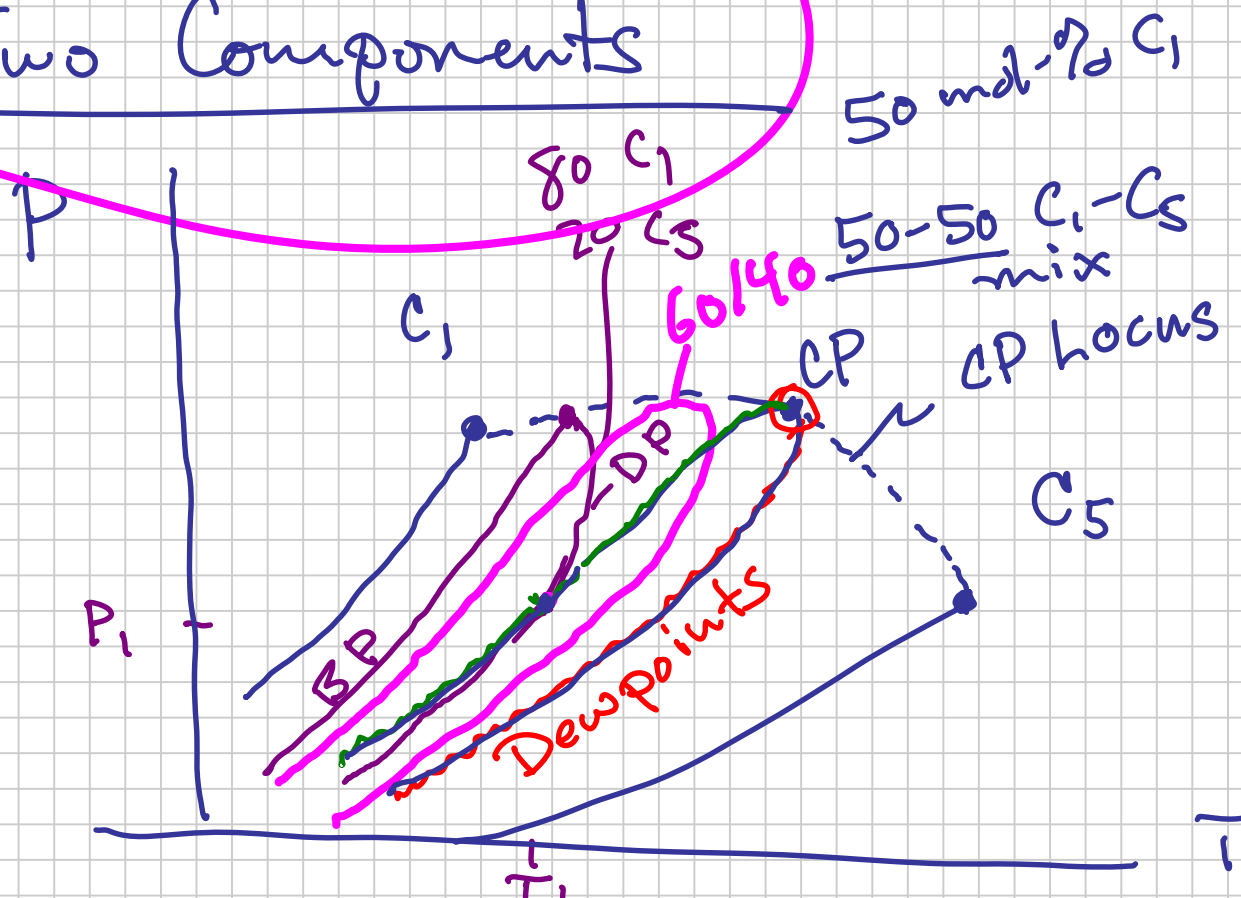 wo Components
50 mol-% C₁
P
80 C₁
20 C5
50-50 C₁-C5
mix
60/40
C₁
CP
CP Locus
DP
C5
P₁
BP
Dewpoints
T₁
T